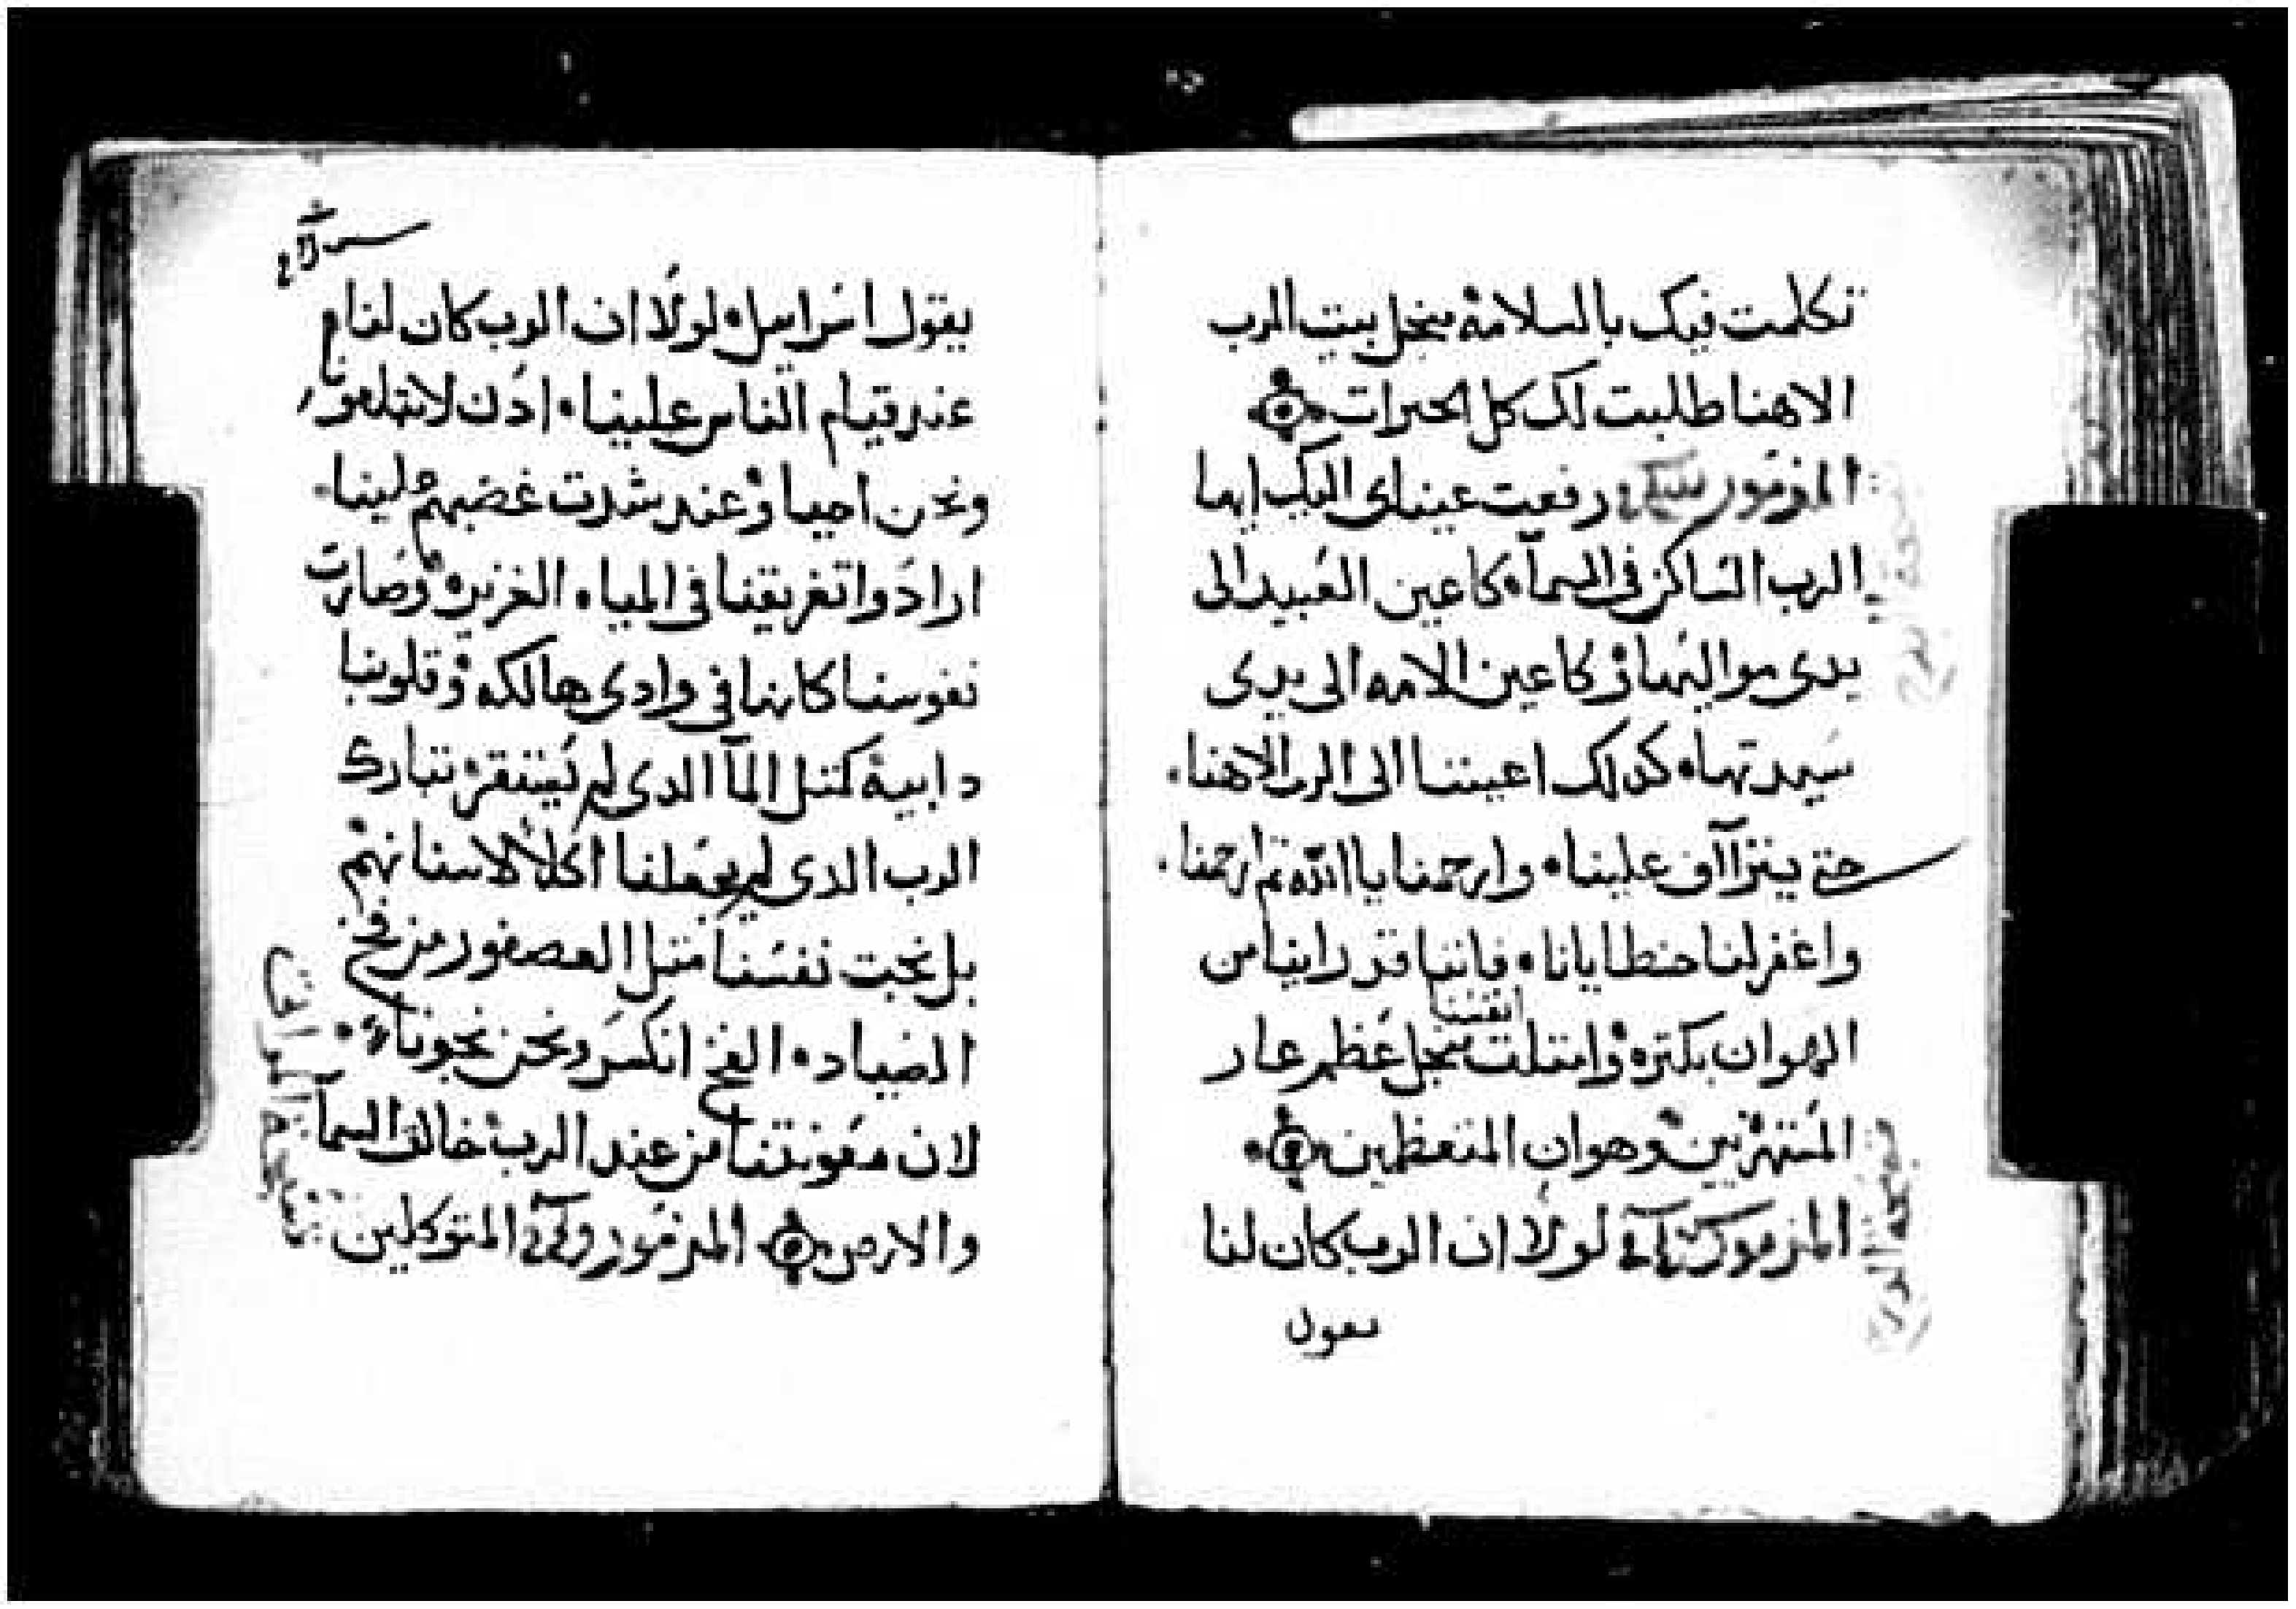 تكلمت فيك بالسلامة منجل بيت الرب
الاهنا طلبت لك كل الخيرات
المزمور رفعت عيناى اليك ايها
الرب الساكن فى السمآ كاعين العبيد الى
يدى مواليها وكاعين الامه الى يدى
سيدتها كدلك اعيننا الى الرب الاهنا
حتى يتراآف علينا وارحمنا يا الله تم ارحمنا
واغفر لنا خطايانا فاننا قد راينا من
الهوان بكتره وامتلت انفسنا منجل عظم عار
المستهزيين وهوان المتعظمين
المزمور لولا ان الرب كان لنا
يقول
يقول اسراييل لولا ان الرب كان لنا م
عند قيام الناس علينا ادن لابتلعونا
ونحن احيا وعند شدت غضبهم علينا
ارادوا تغريقنا فى المياه الغزيره وصارت
نفوسنا كانها فى وادى هالكه وقلوبنا
دابية كمتل المآ الدى لم يتبارك
الرب الدى لم يجعلنا اكلا لاسنانهم
بل نجت نفسنا متل العصفور من فخ
الصياد الفخ انكسر ونحن نجونا
لان معونتنا من عند الرب خالق السمآ
والارض المزمور المتوكلين